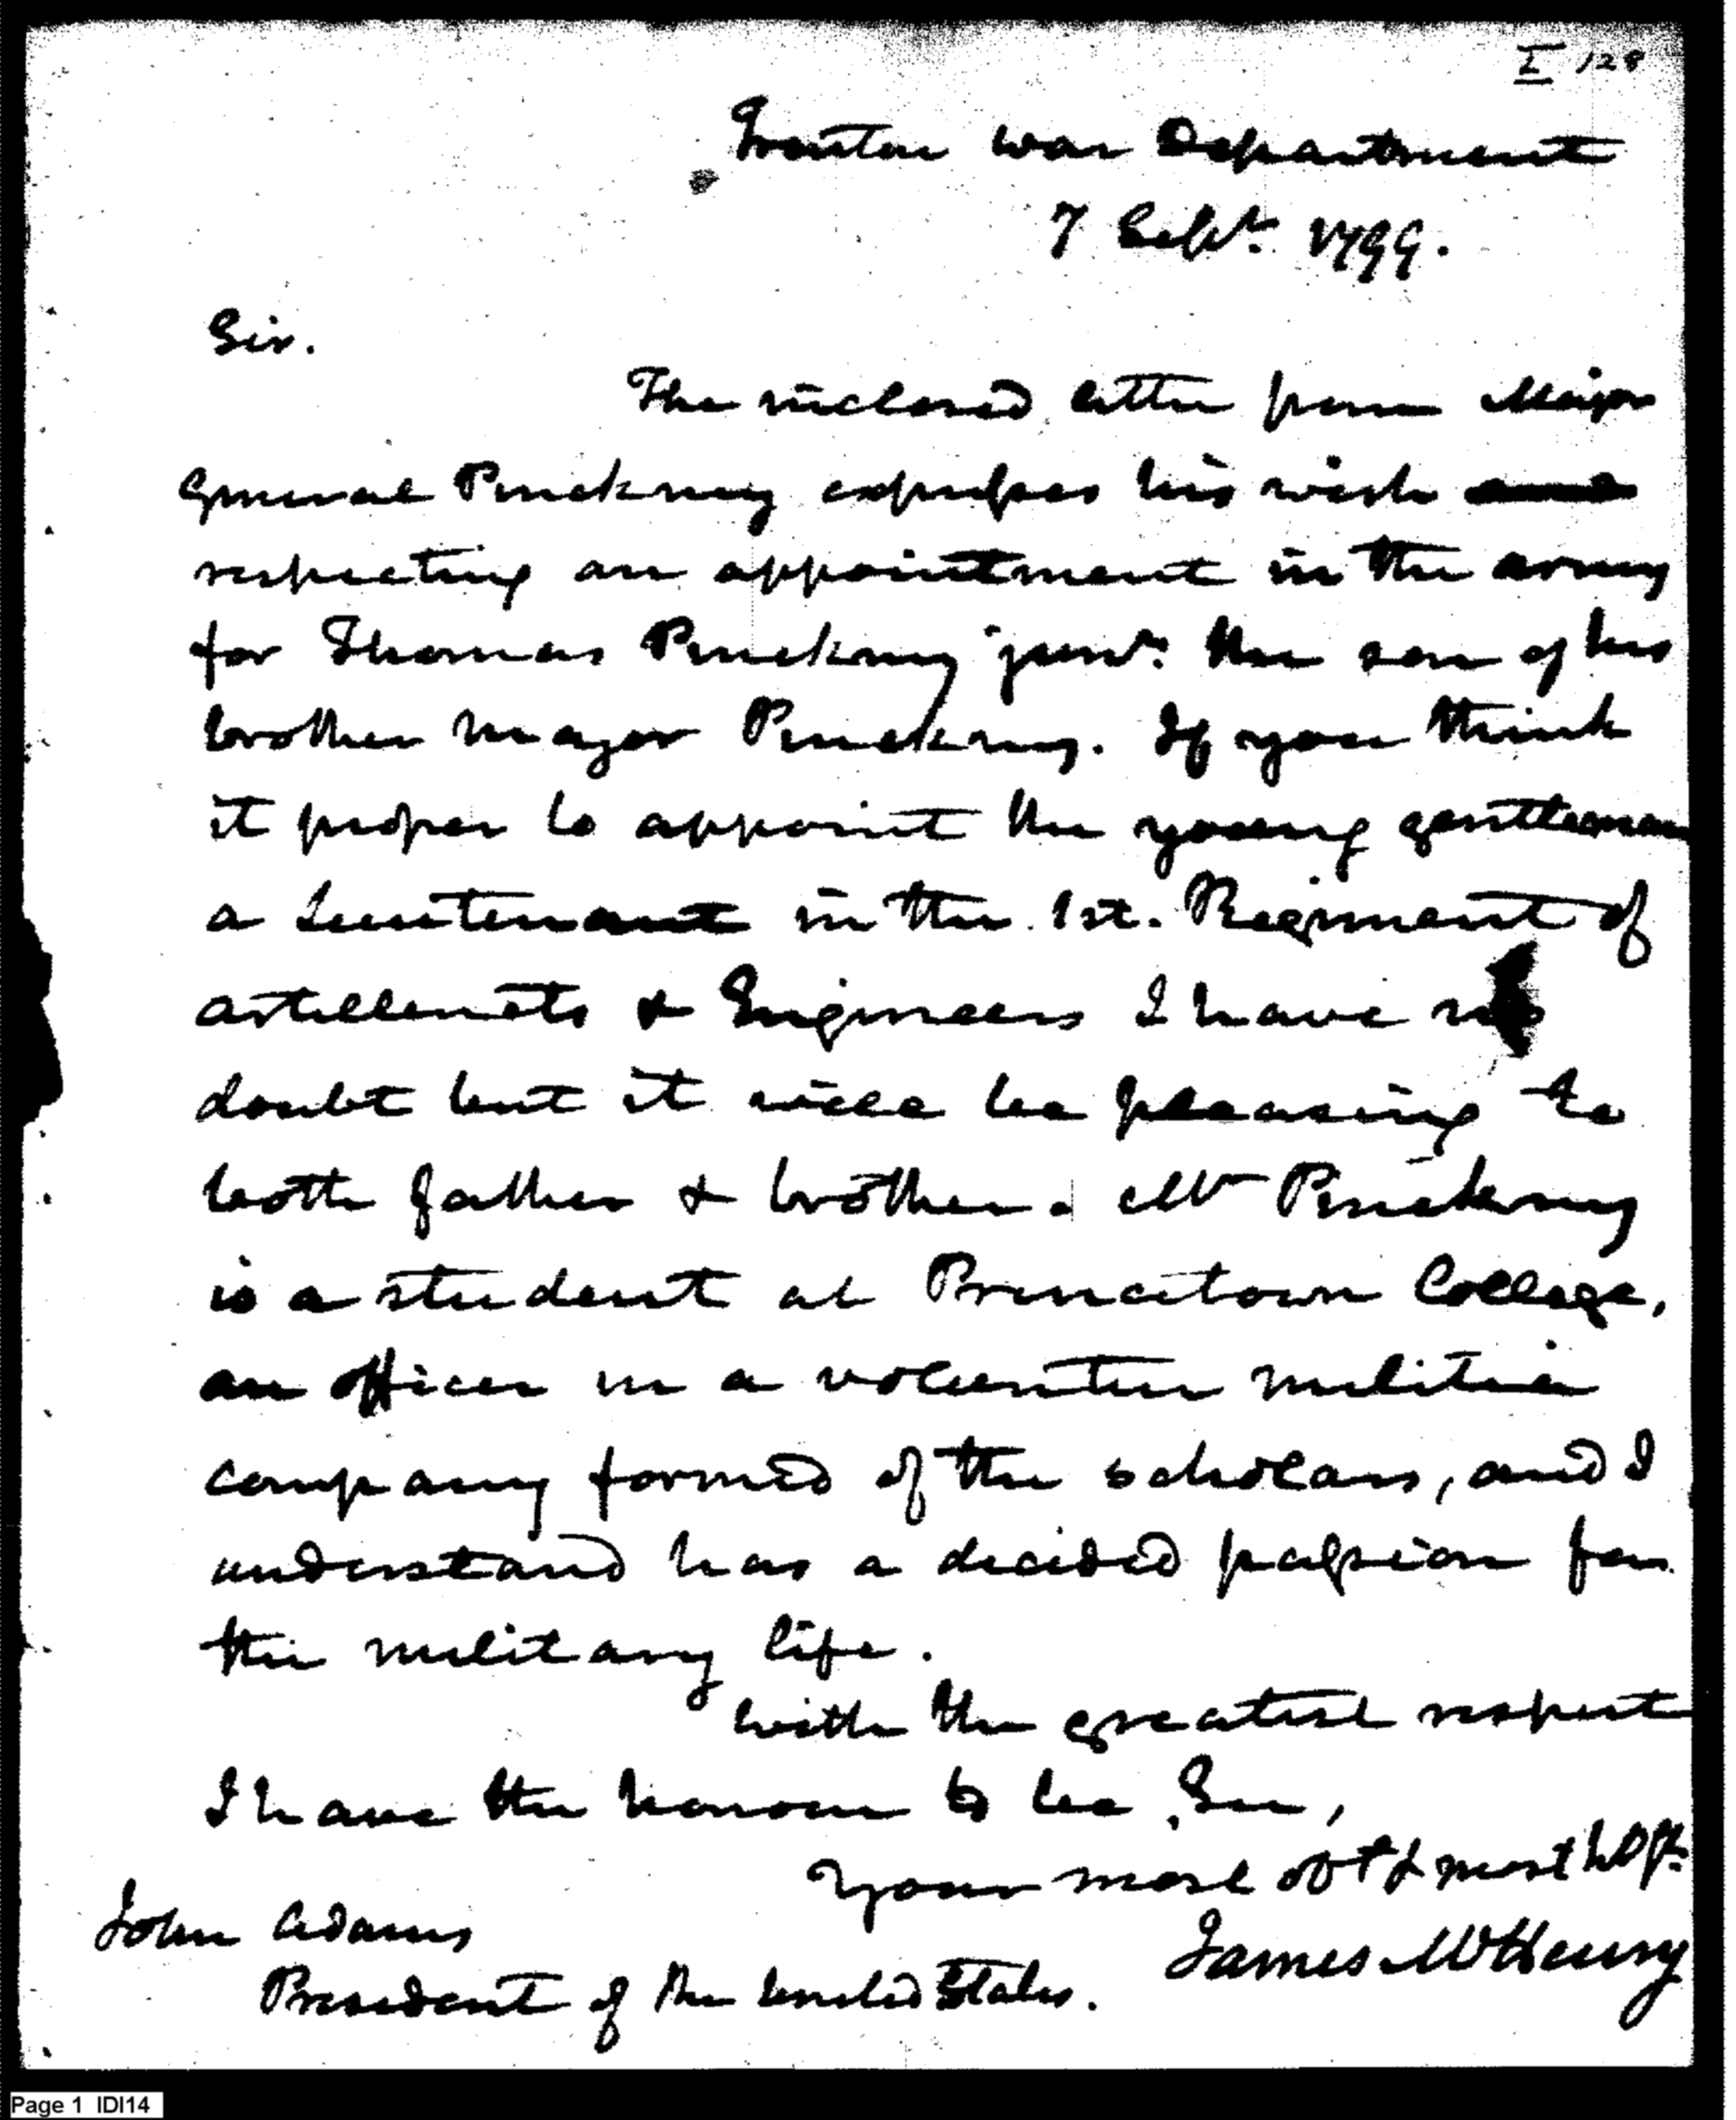 I 128
Trenton War Department
7 Sept. 1799.
Sir.
The inclosed letter from Major
General Pinckney expresses his wish
respecting an appointment in the army
for Thomas Pinckney junr. the son of his
brother Major Pinckney. If you think
it proper to appoint the young gentleman
a Lieutenant in the 1st. Regiment of
artillerists & Engineers I have no
doubt but it will be pleasing to
both father & brother. Mr Pinckney
is a student at Princetown College,
an officer in a volunteer militia
company formed of the scholars, and I
understand has a decided passion for
the military life.
with the greatest respect
I have the honour to be, Sir,
Your most obt & most hble st.
James McHenry
John Adams
President of the United States.
Page 1 IDI14